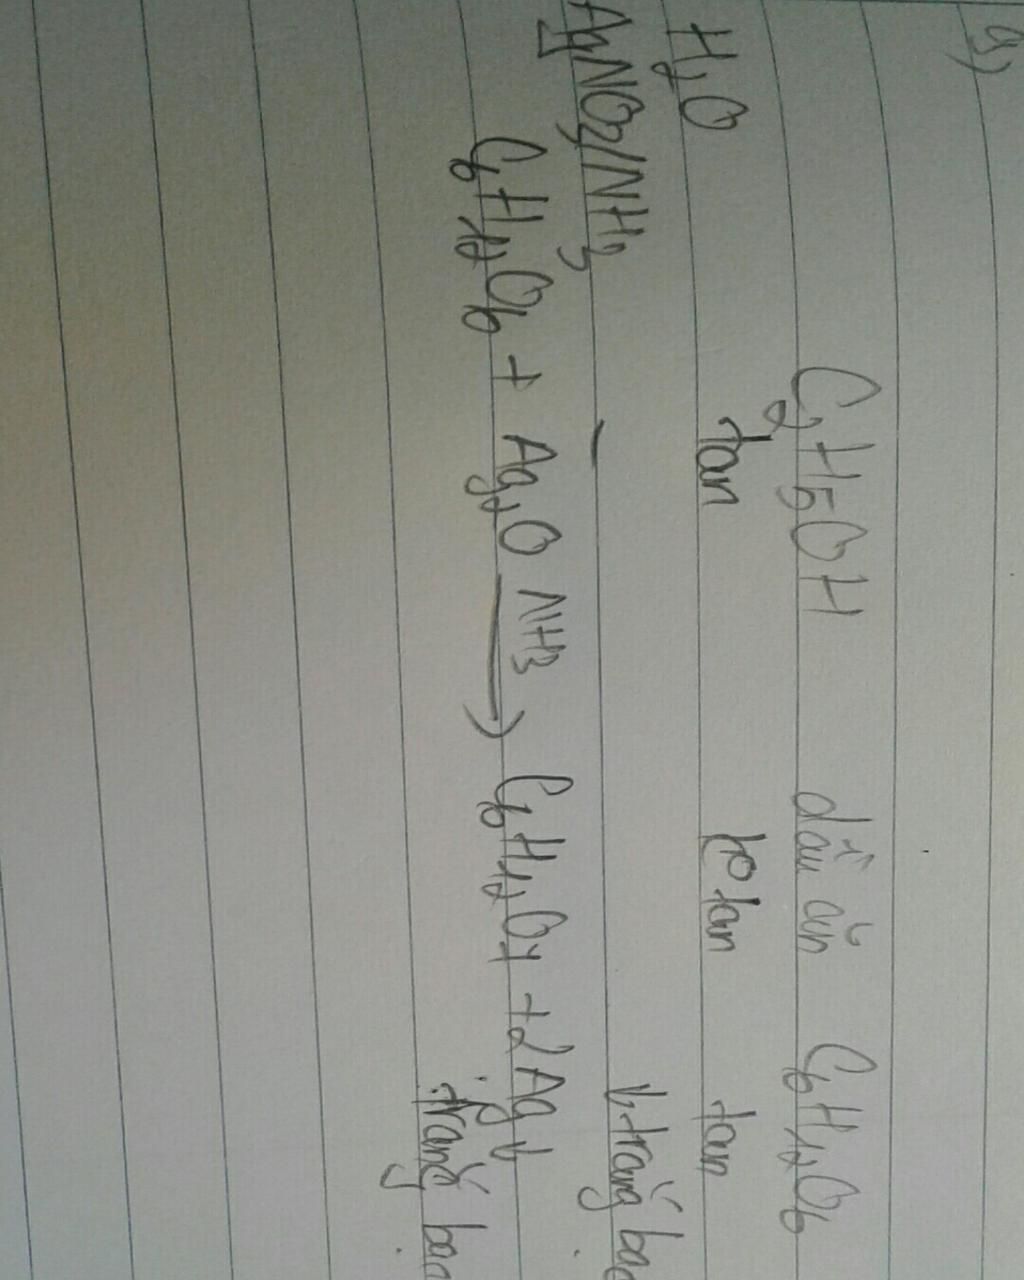 a)
C₂H₅OH dầu ăn C₆H₁₂O₆
H₂O tan k⁰ tan tan
AgNO₃/NH₃ – ↓ trắng bạc
C₆H₁₂O₆ + Ag₂O NH₃→ C₆H₁₂O₇ + 2Ag↓
trắng bạc